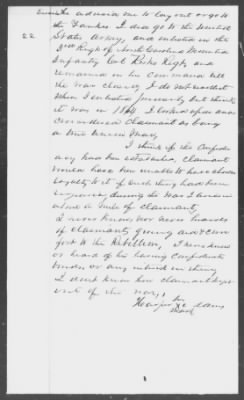 advise me to lay out or go to
the Yankees I did go to the United
22 States Army, and enlisted in the
3rd Regt of North Carolina Mounted
Infantry Col Kirks Regt, and
remained in his command till
the war closed, I do not recollect
when I enlisted precisely but think
it was in 1864. I looked upon and
considered claimant as being
a true Union man,
I think if the Confeder
acy had been established, claimant
would have been unable to have shown
loyalty to it if such thing had been
required during the war I lived in
about a mile of claimant,
I never knew nor never heard
of claimants giving aid & com
fort to the Rebellion, I never knew
or heard of his having Confederate
bonds or any interest in them
I don't know how claimant kept
out of the war,
his
mark